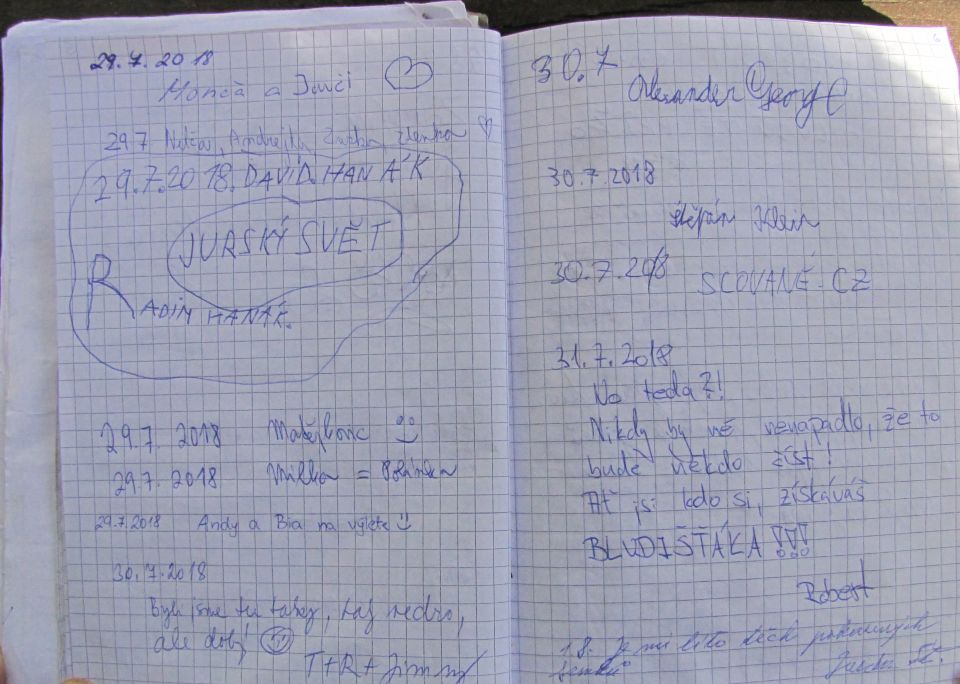 29.7.2018
Monča a Danči
29.7
29.7.2018. DAVID. HANÁK
JURSKÝ SVĚT
RADIM HANÁK.
29.7. 2018
29.7. 2018 Milka =
29.7.2018 Andy a Bia na výletě
30.7.2018
Byli jsme tu taky,
ale dobrý
T+R+Jimmy
6
30.7
Alexander George
30.7.2018
Štěpán Klein
30.7.2018 SCOVANÉ.CZ
31.7.2018
No teda?!
Nikdy by mě nenapadlo, že to
bude někdo číst!
Ať jsi kdo si, získáváš
BLUDIŠŤÁKA !!!
Robert
1.8. Je mi líto těch